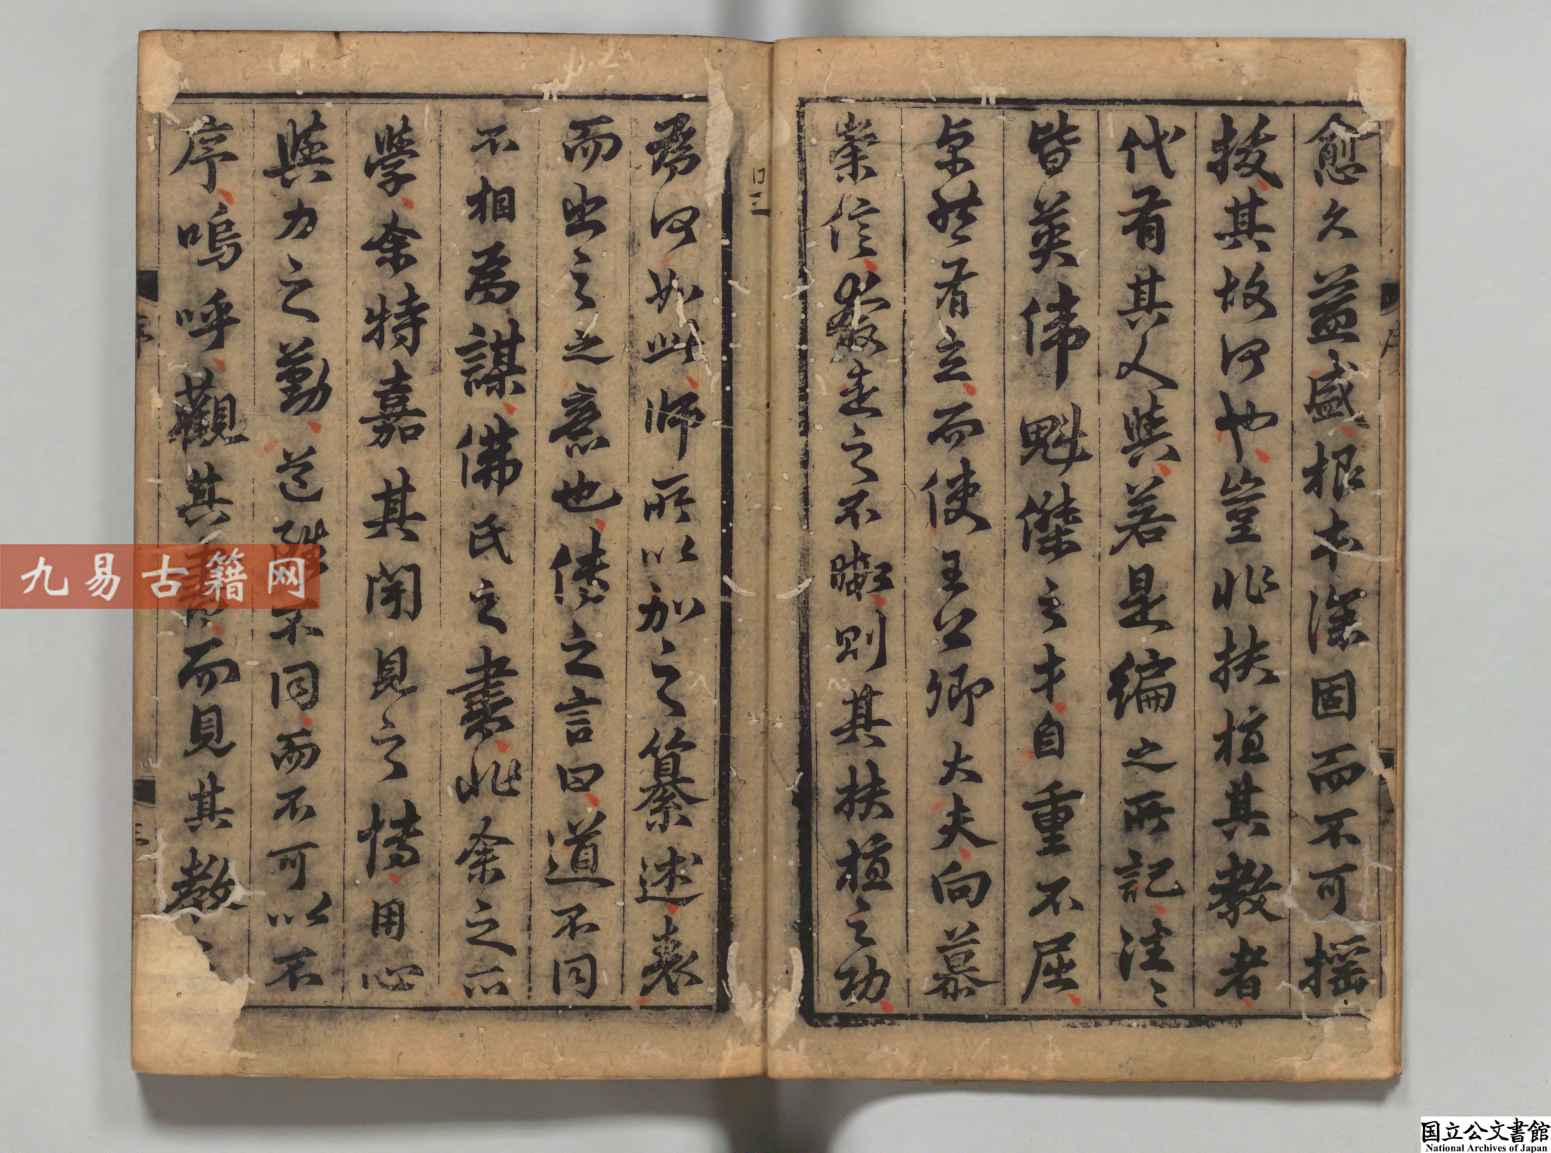 愈久益盛根本深固而不可摇
拔其故何也豈非扶植其教者
代有其人與若是編之所記注々
皆英偉魁傑之才自重不屈
卓然有立而使王公卿大夫向慕
崇信教走之不暇則其扶植之功
爲何如此師所以加之纂述表
而出之之意也傳之言曰道不同
不相爲謀佛氏之書非余之所
學余特嘉其聞見之博用心
與力之勤道雖不同而不可以不
序嗚呼觀其 而見其教
九易古籍网
国立公文書館
National Archives of Japan